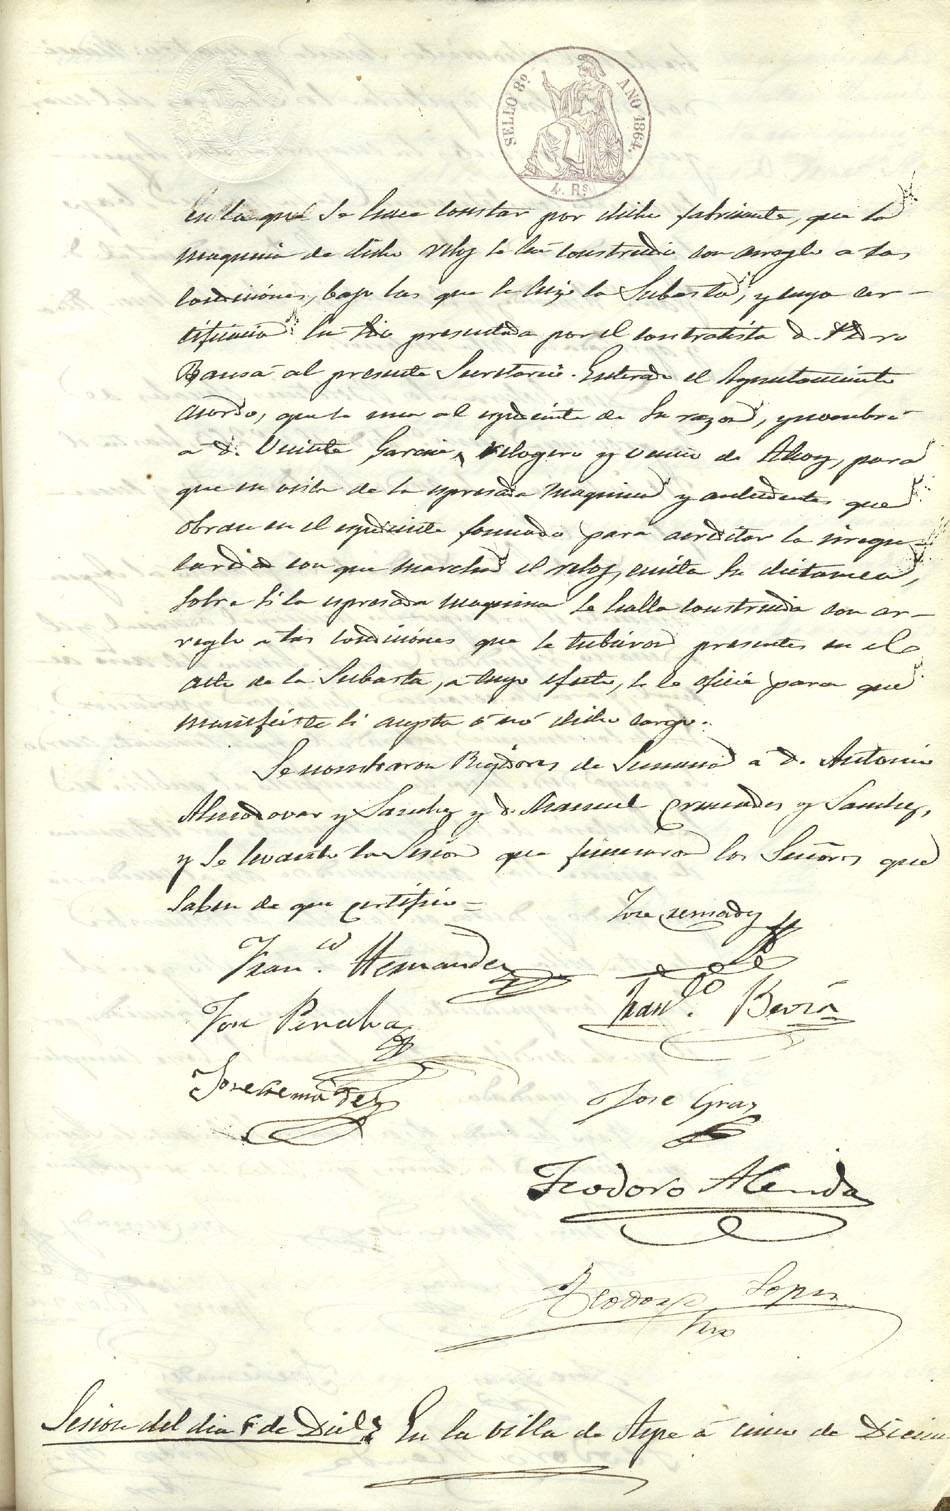 SELLO 8º AÑO 1864.
4. Rs
en la que se hace constar por dicho fabricante, que la
maquina de dicho reloj se ha construido con arreglo a las
condiciones, bajo las que se hizo la Subasta, y cuya cer-
tificacion ha sido presentada por el contratista D. Pedro
Bausá al presente Secretario. Enterado el Ayuntamiento
acordó, que se una al espediente de su razon, y nombró
a D. Vicente Garcia, relogero y vecino de Alcoy, para
que en vista de la espresada maquina y antecedentes que
obran en el espediente formado para acreditar la irregu-
laridad con que marcha el reloj, emita su dictamen,
sobre si la espresada maquina se halla construida con ar-
reglo a las condiciones que se tubieron presentes en el
acto de la Subasta, a cuyo efecto, se le oficie para que
manifieste si acepta ó nó dicho cargo.
Se nombraron Regidores de Semana a D. Antonio
Almodovar y Sanchez y D. Manuel Cremades y Sanchez,
y se levantó la Sesion que firmaron los Señores que
saben de que certifico =
Jose Cremades
Franco. Hernandez
Franco. Beviá
Jose Penalva
Jose Cremades
Jose Gras
Teodoro Alenda
Teodoro Lopez
Srio
Sesion del dia 5 de Dice. En la villa de Aspe á cinco de Diciem